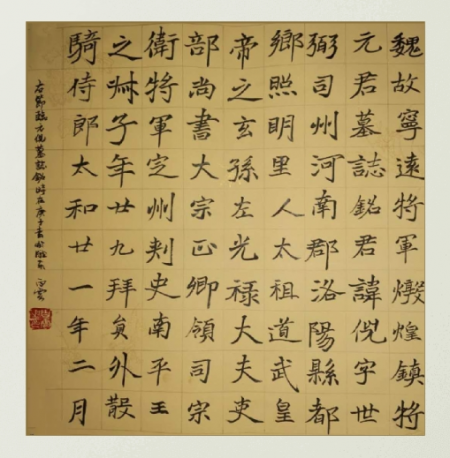 魏故寧遠將軍燉煌鎮將
元君墓誌銘君諱倪字世
弼司州河南郡洛陽縣都
鄉照明里人太祖道武皇
帝之玄孫左光祿大夫吏
部尚書大宗正卿領司宗
衛將軍定州刺史南平王
之叔子年廿九拜員外散
騎侍郎太和廿一年二月
右節臨元倪墓誌銘時在庚子